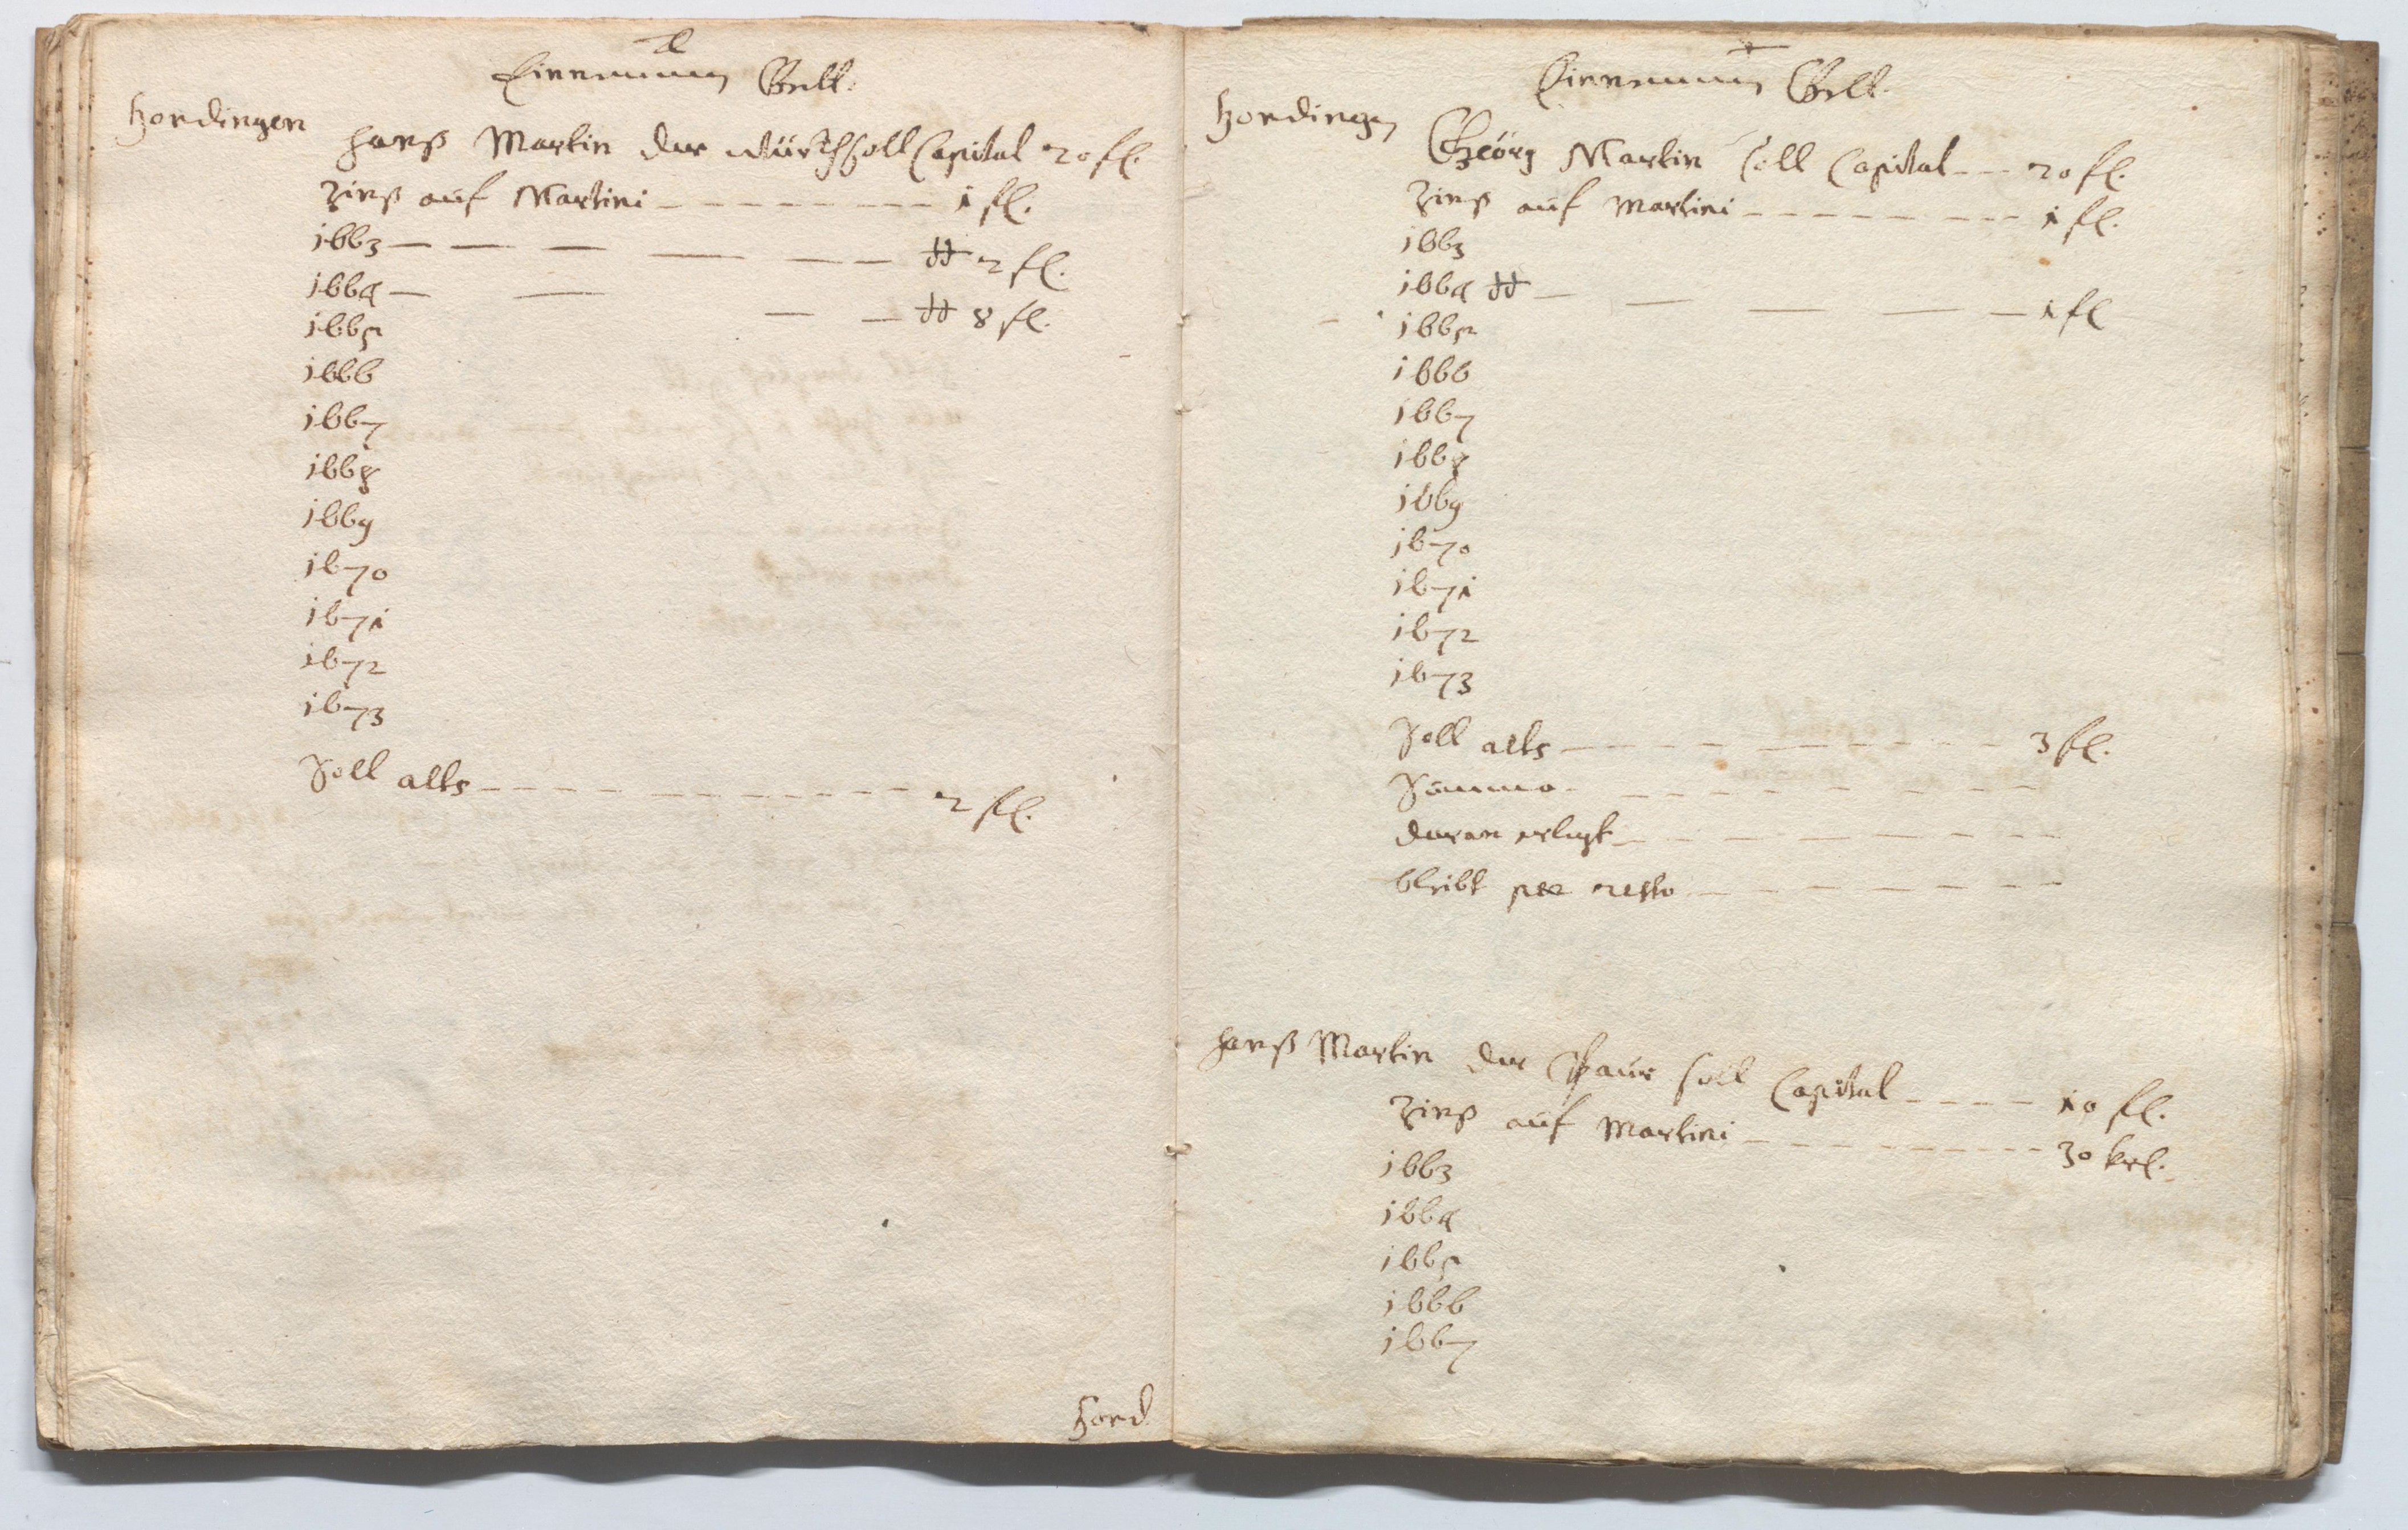 Einnamm Gellt.
Hondingen
Hanß Martin der würth soll Capital 20 fl.
Zinß auf Martini 1 fl.
1663 — dt 2 fl.
1664 — dt 8 fl.
1665
1666
1667
1668
1669
1670
1671
1672
1673
Soll allts 2 fl.
Hond
Einnamm Gellt.
Hondingen
Geörg Martin soll Capital 20 fl.
Zinß auf Martini 1 fl.
1663
1664 dt — 1 fl
1665
1666
1667
1668
1669
1670
1671
1672
1673
Soll allts 3 fl.
Summa
daran erlegt
bleibt per resto
Hanß Martin der Paur soll Capital 10 fl.
Zinß auf Martini 30 krl.
1663
1664
1665
1666
1667